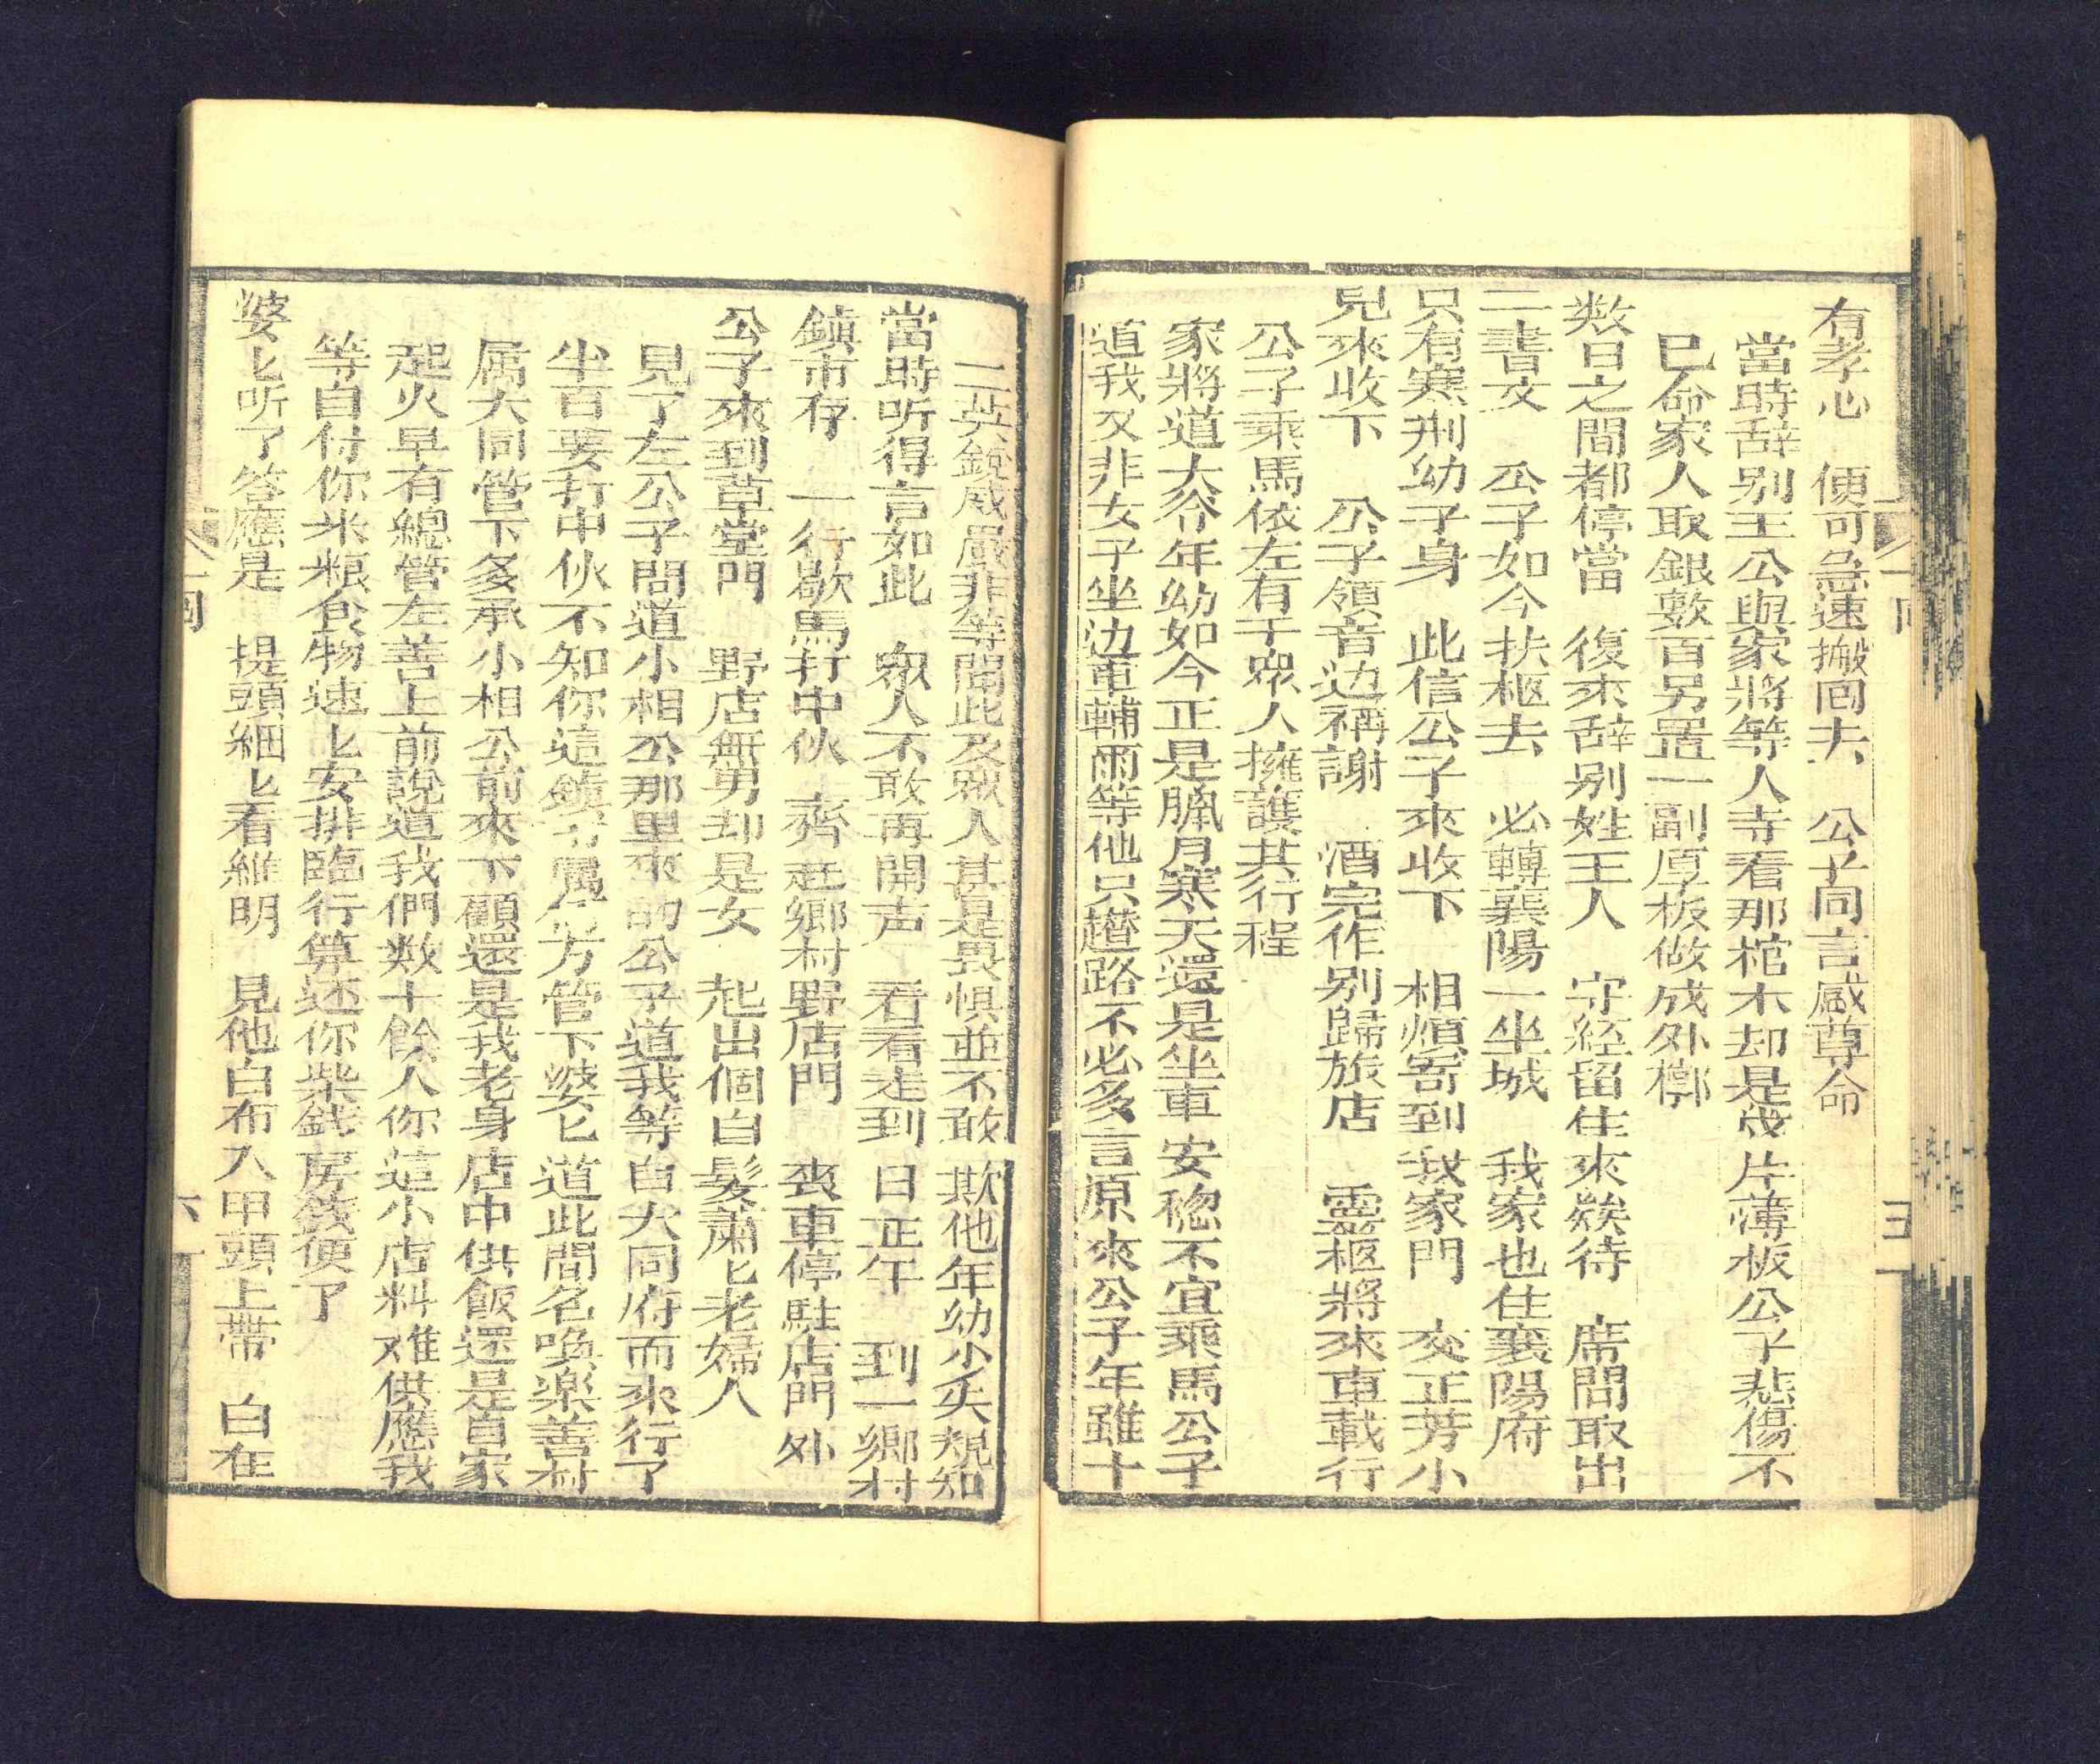 有孝心　便可急速搬回去　公子同言感尊命
當時辞别王公與家將等人寺看那棺木却是幾片薄板公子悲傷不
已命家人取銀数百另置一副厚板做成外槨
数日之間都停當　復來辞别姓王人　守経留住來款待　席間取出
二書文　公子如今扶柩去　必轉襄陽一坐城　我家也住襄陽府
只有寒荆幼子身　此信公子來收下　相煩寄到我家門　交正芳小
兒來收下　公子領音边稱謝　酒完作别歸旅店　靈柩將來車載行
公子乘馬依左右　众人擁護其行程
家將道大爷年幼如今正是臈月寒天還是坐車安穏不宜乘馬公子
道我又非女子坐边車輔雨等他只趲路不必多言原來公子年雖十
二英鋭威嚴非等閒此及眾人甚是畏惧並不敢欺他年幼少失規知
當時听得言如此　眾人不敢再開声　看看走到日正午　到一鄉村
鎮市存　一行歇馬打中伙　齊赶鄉村野店門　喪車停駐店門外
公子來到草堂門　野店無男却是女　赱出個白髮蕭匕老婦人
見了左公子問道小相公那里來的公子道我等自大同府而來行了
半百要打中伙不知你這鎮市屬何方管下婆匕道此間名喚楽善村
属大同管下多承小相公前來下顧還是我老身店中供飯還是自家
起火早有總管左善上前說道我們数十餘人你這小店料难供應我
等自付你米粮食物速匕安排臨行算还你柴銭房錢便了
婆匕听了答應是　提頭細匕看維明　見他白布入甲頭上帶　白在
回
五
一回
六